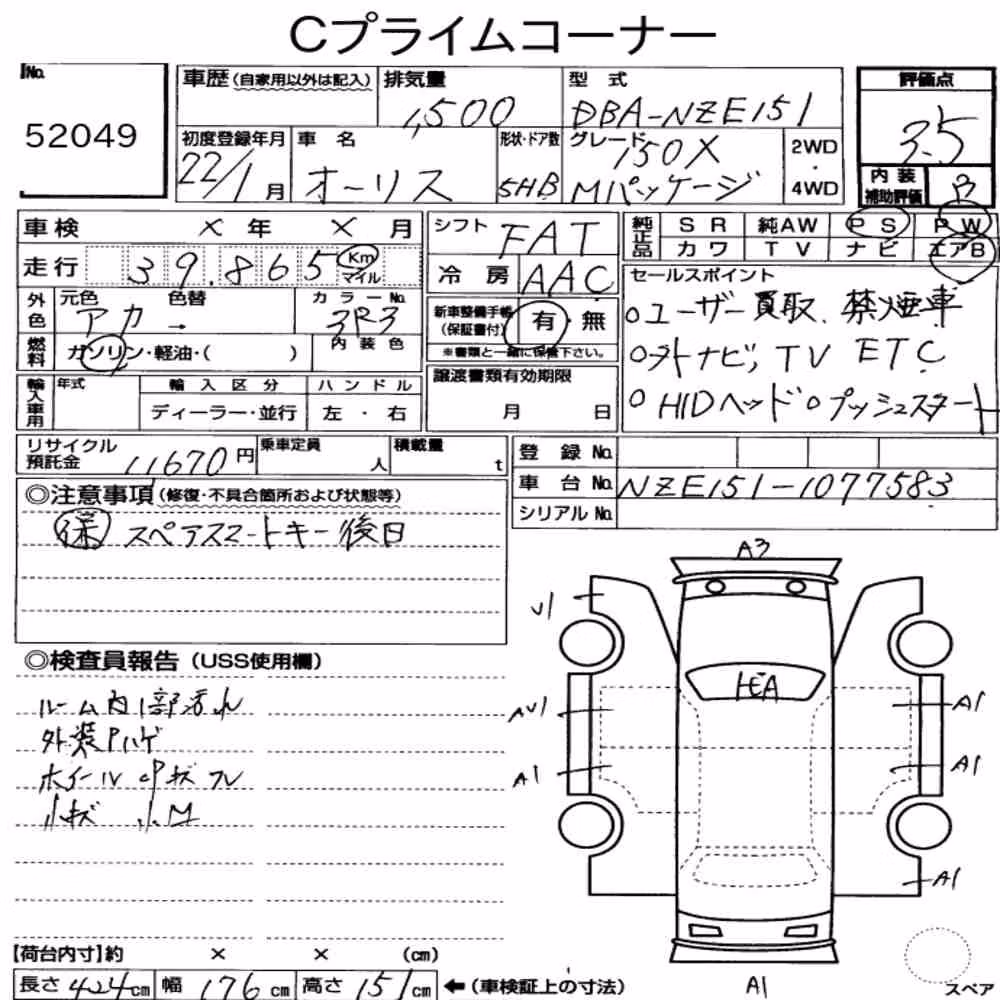 Cプライムコーナー
No.
52049
車歴(自家用以外は記入)
排気量
1,500
型式
DBA-NZE151
評価点
3.5
初度登録年月
22/1月
車名
オーリス
形状・ドア数
5HB
グレード
150X
Mパッケージ
2WD
・
4WD
内装
補助評価
車検 × 年 × 月
走行 39,865 Km
マイル
外色
元色 色替
アカ →
カラーNo.
3R3
燃料
ガソリン・軽油・( )
内装色
シフト FAT
冷房 AAC
新車整備手帳
(保証書付)
有・無
※書類と一緒に保管下さい。
純正品
SR 純AW PS PW
カワ TV ナビ エアB
セールスポイント
○ユーザー買取、禁煙車
○外ナビ, TV ETC
○HIDヘッド○プッシュスタート
輸入車用
年式
輸入区分
ディーラー・並行
ハンドル
左・右
譲渡書類有効期限
月 日
リサイクル
預託金
11670円
乗車定員
人
積載量
t
登録No.
車台No. NZE151-1077583
シリアルNo.
◎注意事項(修復・不具合箇所および状態等)
スペアスマートキー後日
◎検査員報告(USS使用欄)
ルーム内1部汚れ
外装Pハゲ
ホイールCPキズフレ
小キズ 小M
A3
U1
AU1
A1
A1
A1
A1
A1
スペア
【荷台内寸】約 × × (cm)
長さ 424cm 幅 176cm 高さ 151cm ←(車検証上の寸法)